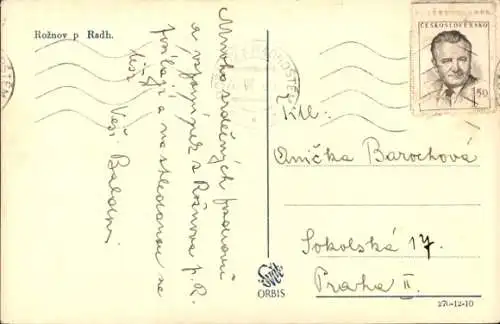 Rožnov p Radh.
Mnoho srdečných pozdravů
a vzpomínek z Rožnova p. R.
posílají a na shledanou na
Vaši Balcarovi
ČESKOSLOVENSKO
1.50
Titl:
Anička Barochová
Sokolská 17.
Praha II.
ORBIS
270-12-10